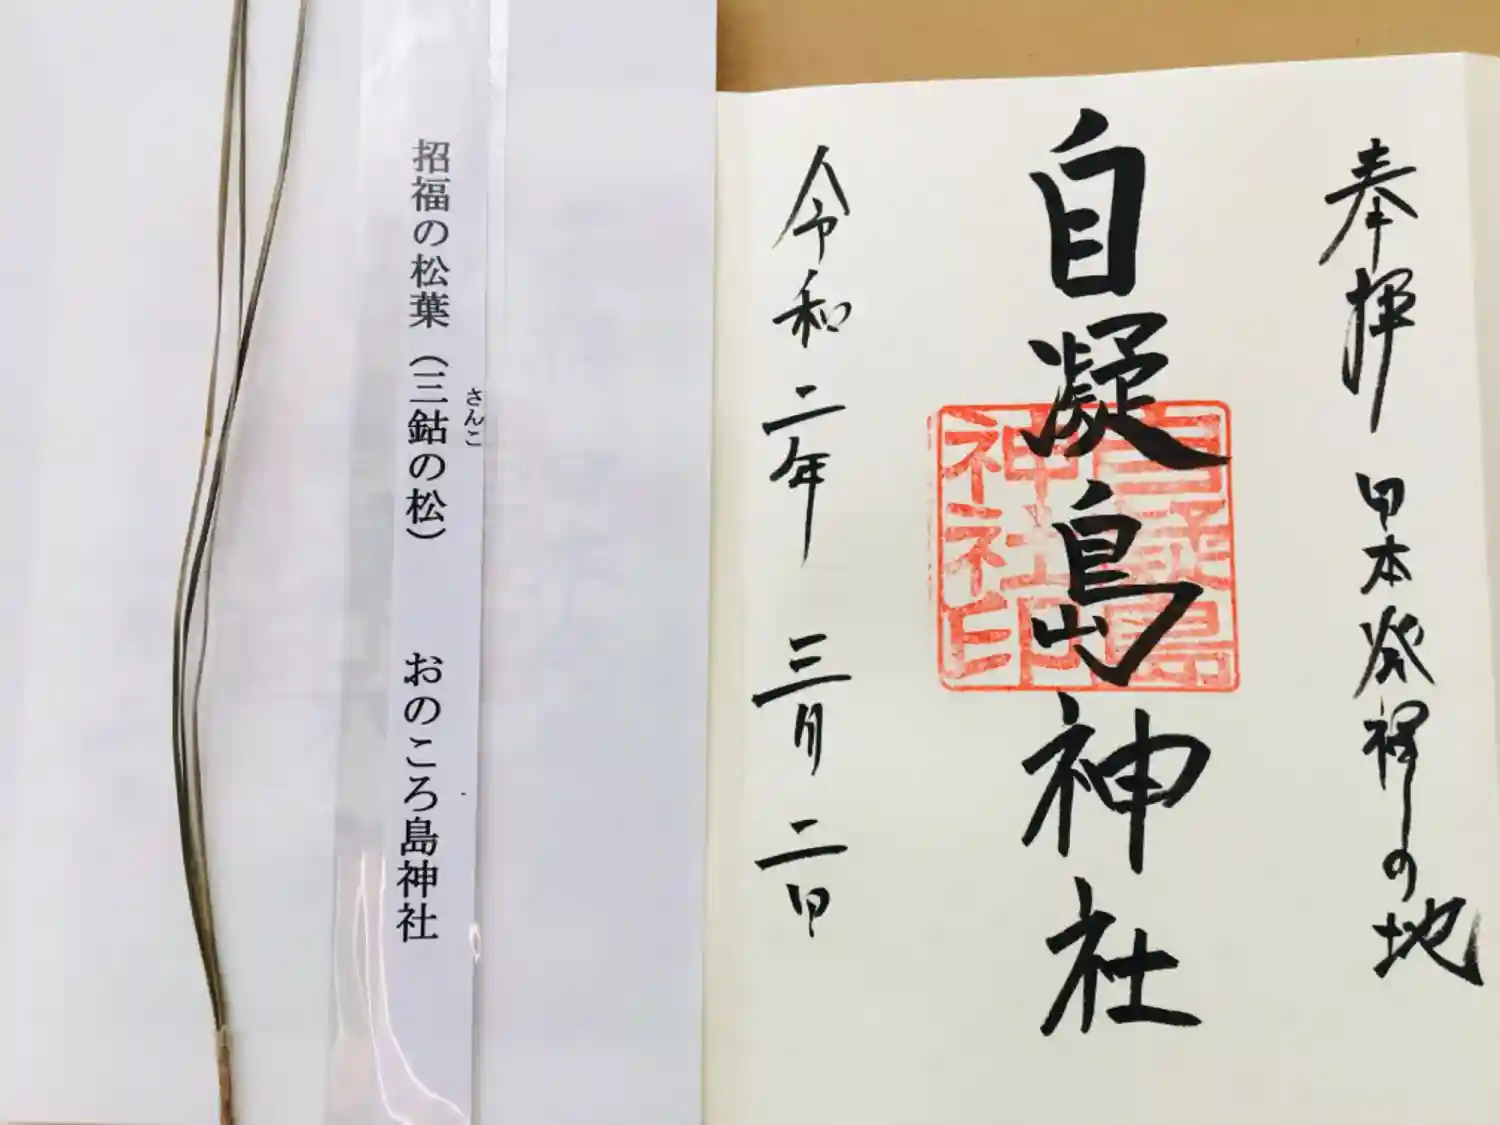 奉拝 日本発祥の地
自凝島神社
自凝島
神社印
令和二年 三月二日
さんこ
招福の松葉（三鈷の松） おのころ島神社